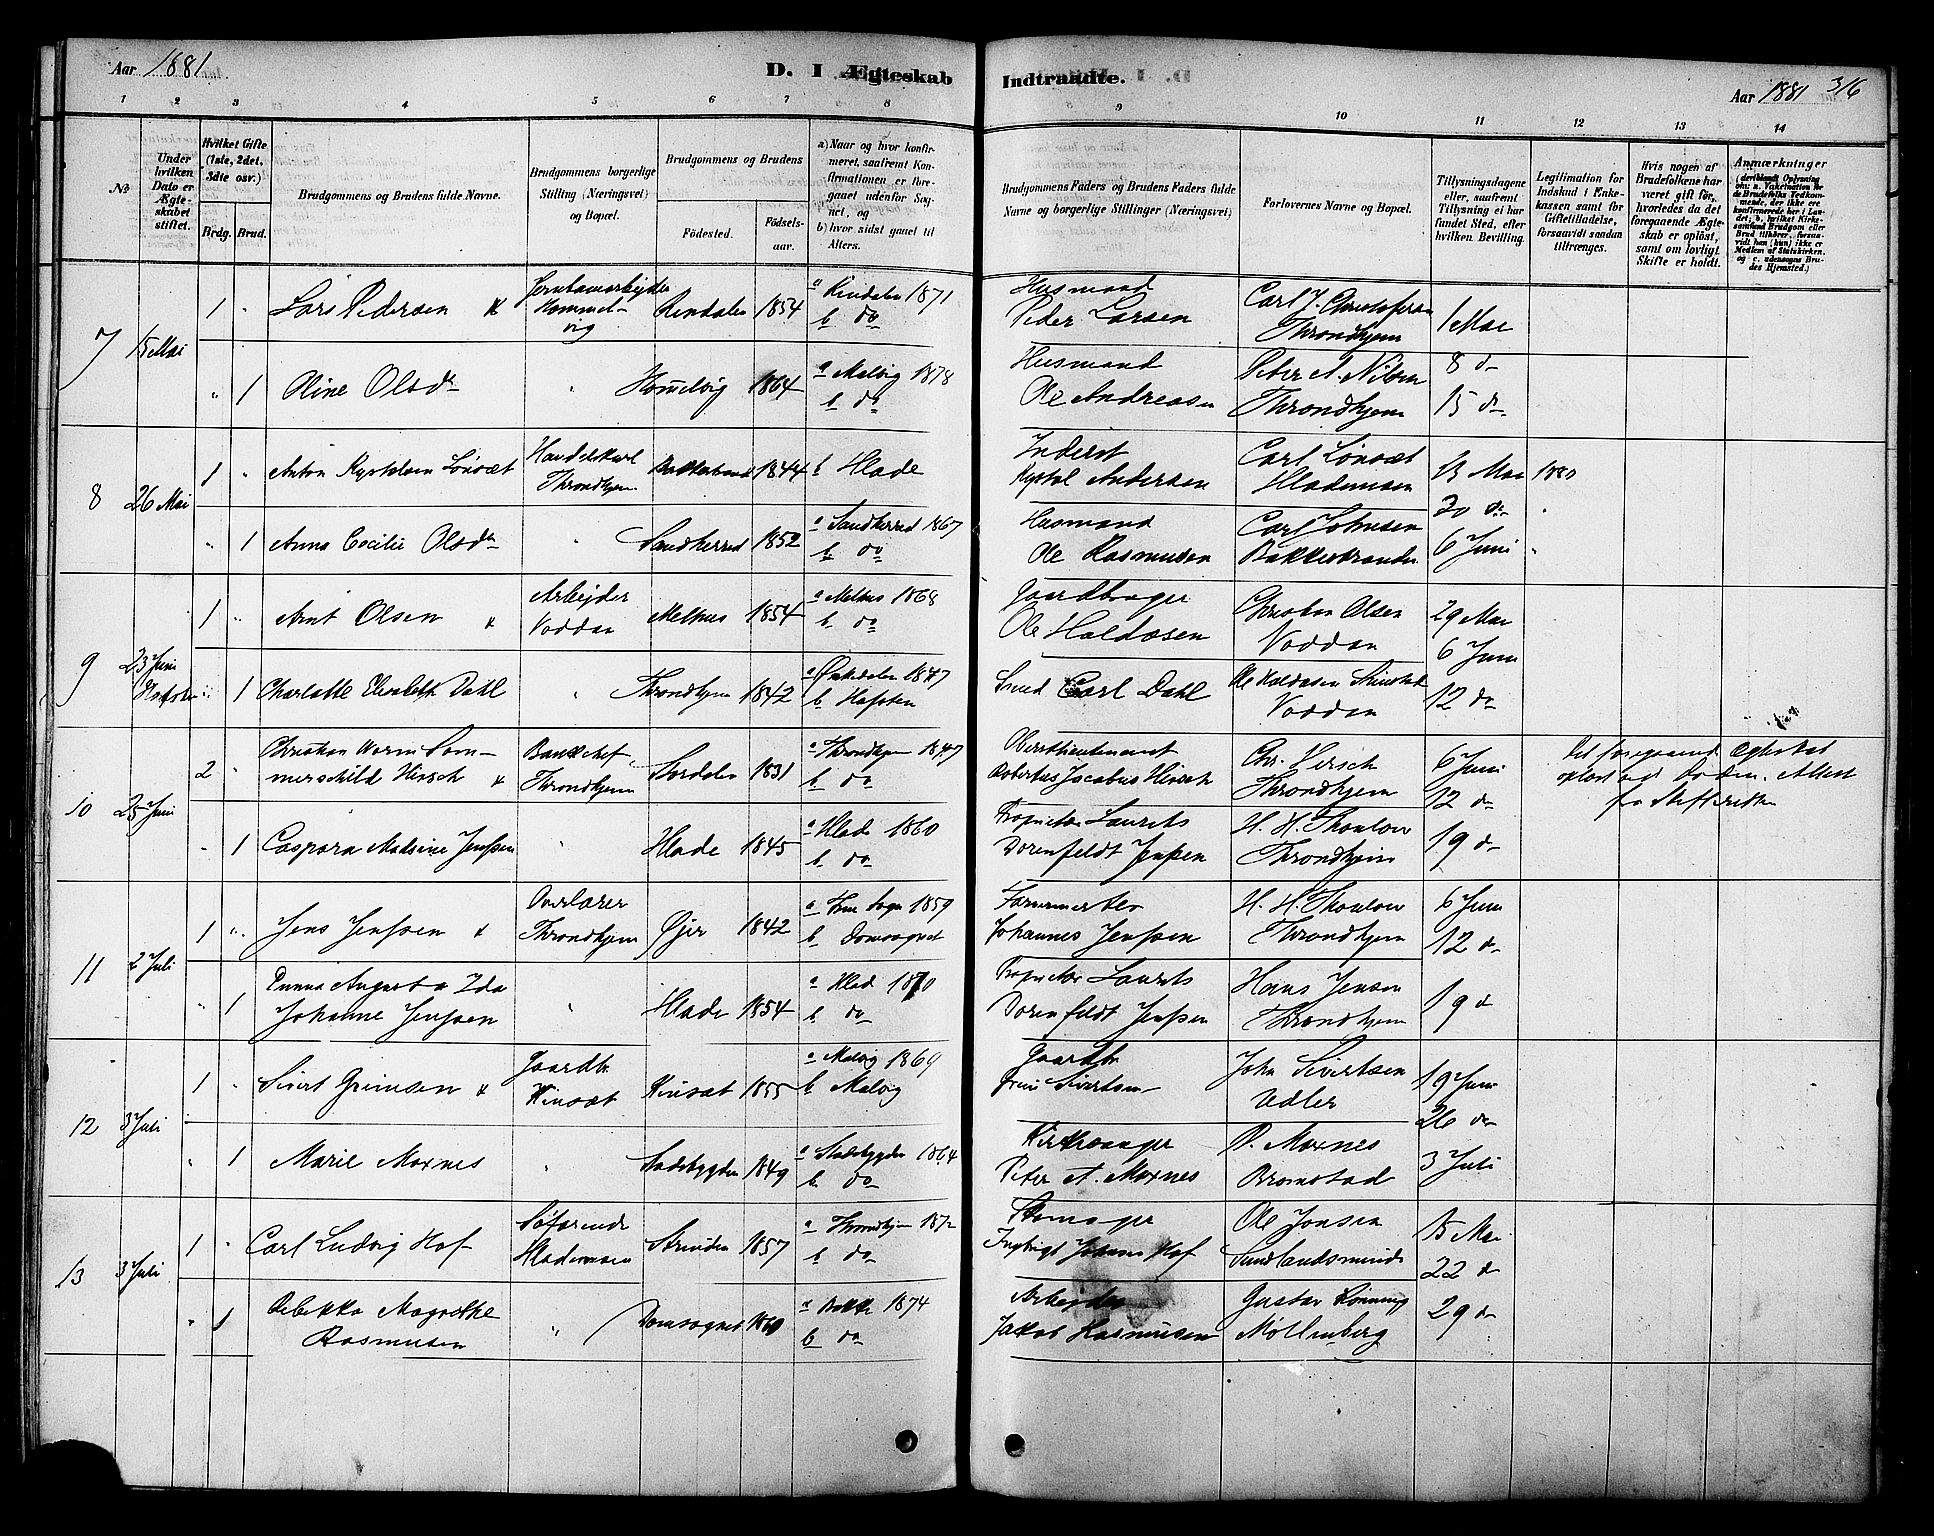 Aar 1881
D. I Ægteskab
Indtraadte.
Aar 1881 316
1 2 3 4 5 6 7 8
9 10 11 12 13 14
No
Under hvilken Dato er Ægteskabet stiftet.
Hvilket Gifte (1ste, 2det, 3dte osv.)
Brdg. Brud.
Brudgommens og Brudens fulde Navne.
Brudgommens borgerlige Stilling (Næringsvei) og Bopæl.
Brudgommens og Brudens
Fødested.
Fødselsaar.
a) Naar og hvor konfirmeret, saafremt Konfirmationen er foregaaet udenfor Sognet, og
b) hvor sidst gaaet til Alters.
Brudgommens Faders og Brudens Faders fulde Navne og borgerlige Stillinger (Næringsvei)
Forlovernes Navne og Bopæl.
Tillysningsdagene eller, saafremt Tillysning ei har fundet Sted, efter hvilken Bevilling.
Legitimation for Indskud i Enkekassen samt for Giftetilladelse, forsaavidt saadan tiltrænges.
Hvis nogen af Brudefolkene har været gift før, hvorledes da det foregaaende Ægteskab er opløst, samt om lovligt Skifte er holdt.
Anmærkninger
7 15 Mai
1 " Lars Pedersen Hommelvig Rindalen 1854 a Rindalen 1871 b do
Husmand Peder Larsen Throndhjem 1 Mai
" 1 Oline Olsdr " Homelvig 1864 a Malvig 1878 b do
Husmand Ole Andreasen Peter A. Nilsen Throndhjem 8 d 15 d
8 26 Mai
1 " Anton Kystolsen Lönsæt Handelskarl Throndhjem 1844 b Hlade
Inderst Kystol Andersen Carl Lönsæt Hlademoen 13 Mai 1880
" 1 Anna Cecilie Olsdr " Sandherred 1852 a Sandherred 1867 b do
Husmand Ole Rasmusen Carl Johnsen Bakkestranden 20 do 6 Juni
9 23 Juni
1 " Arnt Olsen Arbejder Voddan Melhus 1854 a Melhus 1868 b do
Gaardbruger Ole Haldosen Christian Olsen Voddan 29 Mai 6 Juni
1 Charlotte Elisabeth Dahl " Throndhjem 1842 a Orkedalen 1847 b Hafsten
Smed Carl Dahl Ole Haldosen Voddan 12 do
10 25 Juni
2 " Christian Worm Sommerschild Hirsch Bankchef Throndhjem 1831 a Throndhjem 1847 b do
Oberstlieutenant Robertus Jacobus Hirsch Chr. Hersch Throndhjem 6 Juni 12 do
Det foregaaende Ægteskab opløst ved Døden. Attest fra Skifteretten
" 1 Caspara Madsine Jenssen " Hlade 1845 a Hlade 1860 b do
Proprietær Laurits Dorenfeldt Jenssen H. H. Thoulow Throndhjem 19 d
11 2 Juli
1 " Jens Jenssen Overlærer Throndhjem Øjer 1842 a Frue Sogn 1859 b Domsognet
Farvermester Johannes Jenssen H. H. Thoulow Throndhjem 6 Juni 12 d
" 1 Augusta Ida Johanne Jenssen " Hlade 1854 a Hlad 1870 b do
Proprietær Laurits Dorenfeldt Jenssen Hans Jensen Throndhjem 19 d
12 3 Juli
1 " Sivert Grimsen Gaardbr Vinsæt Vinsæt 1855 a Malvig 1869 b Malvig
Gaardbr Sivertsen John Sivertsen Udler 19 Juni 26 do
" 1 Marie Moxnes " Stadsbygden 1849 a Stadsbygden 1864 b do
Kirkesanger Peter A. Moxnes P. Moxnes Bromstad 3 Juli
13 3 Juli
1 " Carl Ludvig Hof Søfarende Hlademoen Strinden 1857 a Throndhjem 1872 b do
Skomager Ingbrigt Johnsen Hof Ole Jonsen 15 Mai 22 d
" 1 Rebekka Magrethe Rasmusen " Domsognet 1860 a Bakke 1874 b do
Arbejder Jakob Rasmussen Gustav Rönning Möllenberg 29 d